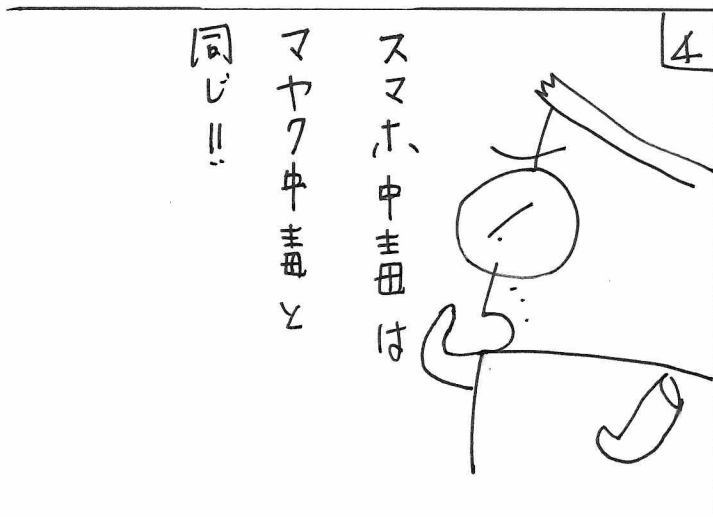 4
スマホ中毒は
マヤク中毒と
同じ!!